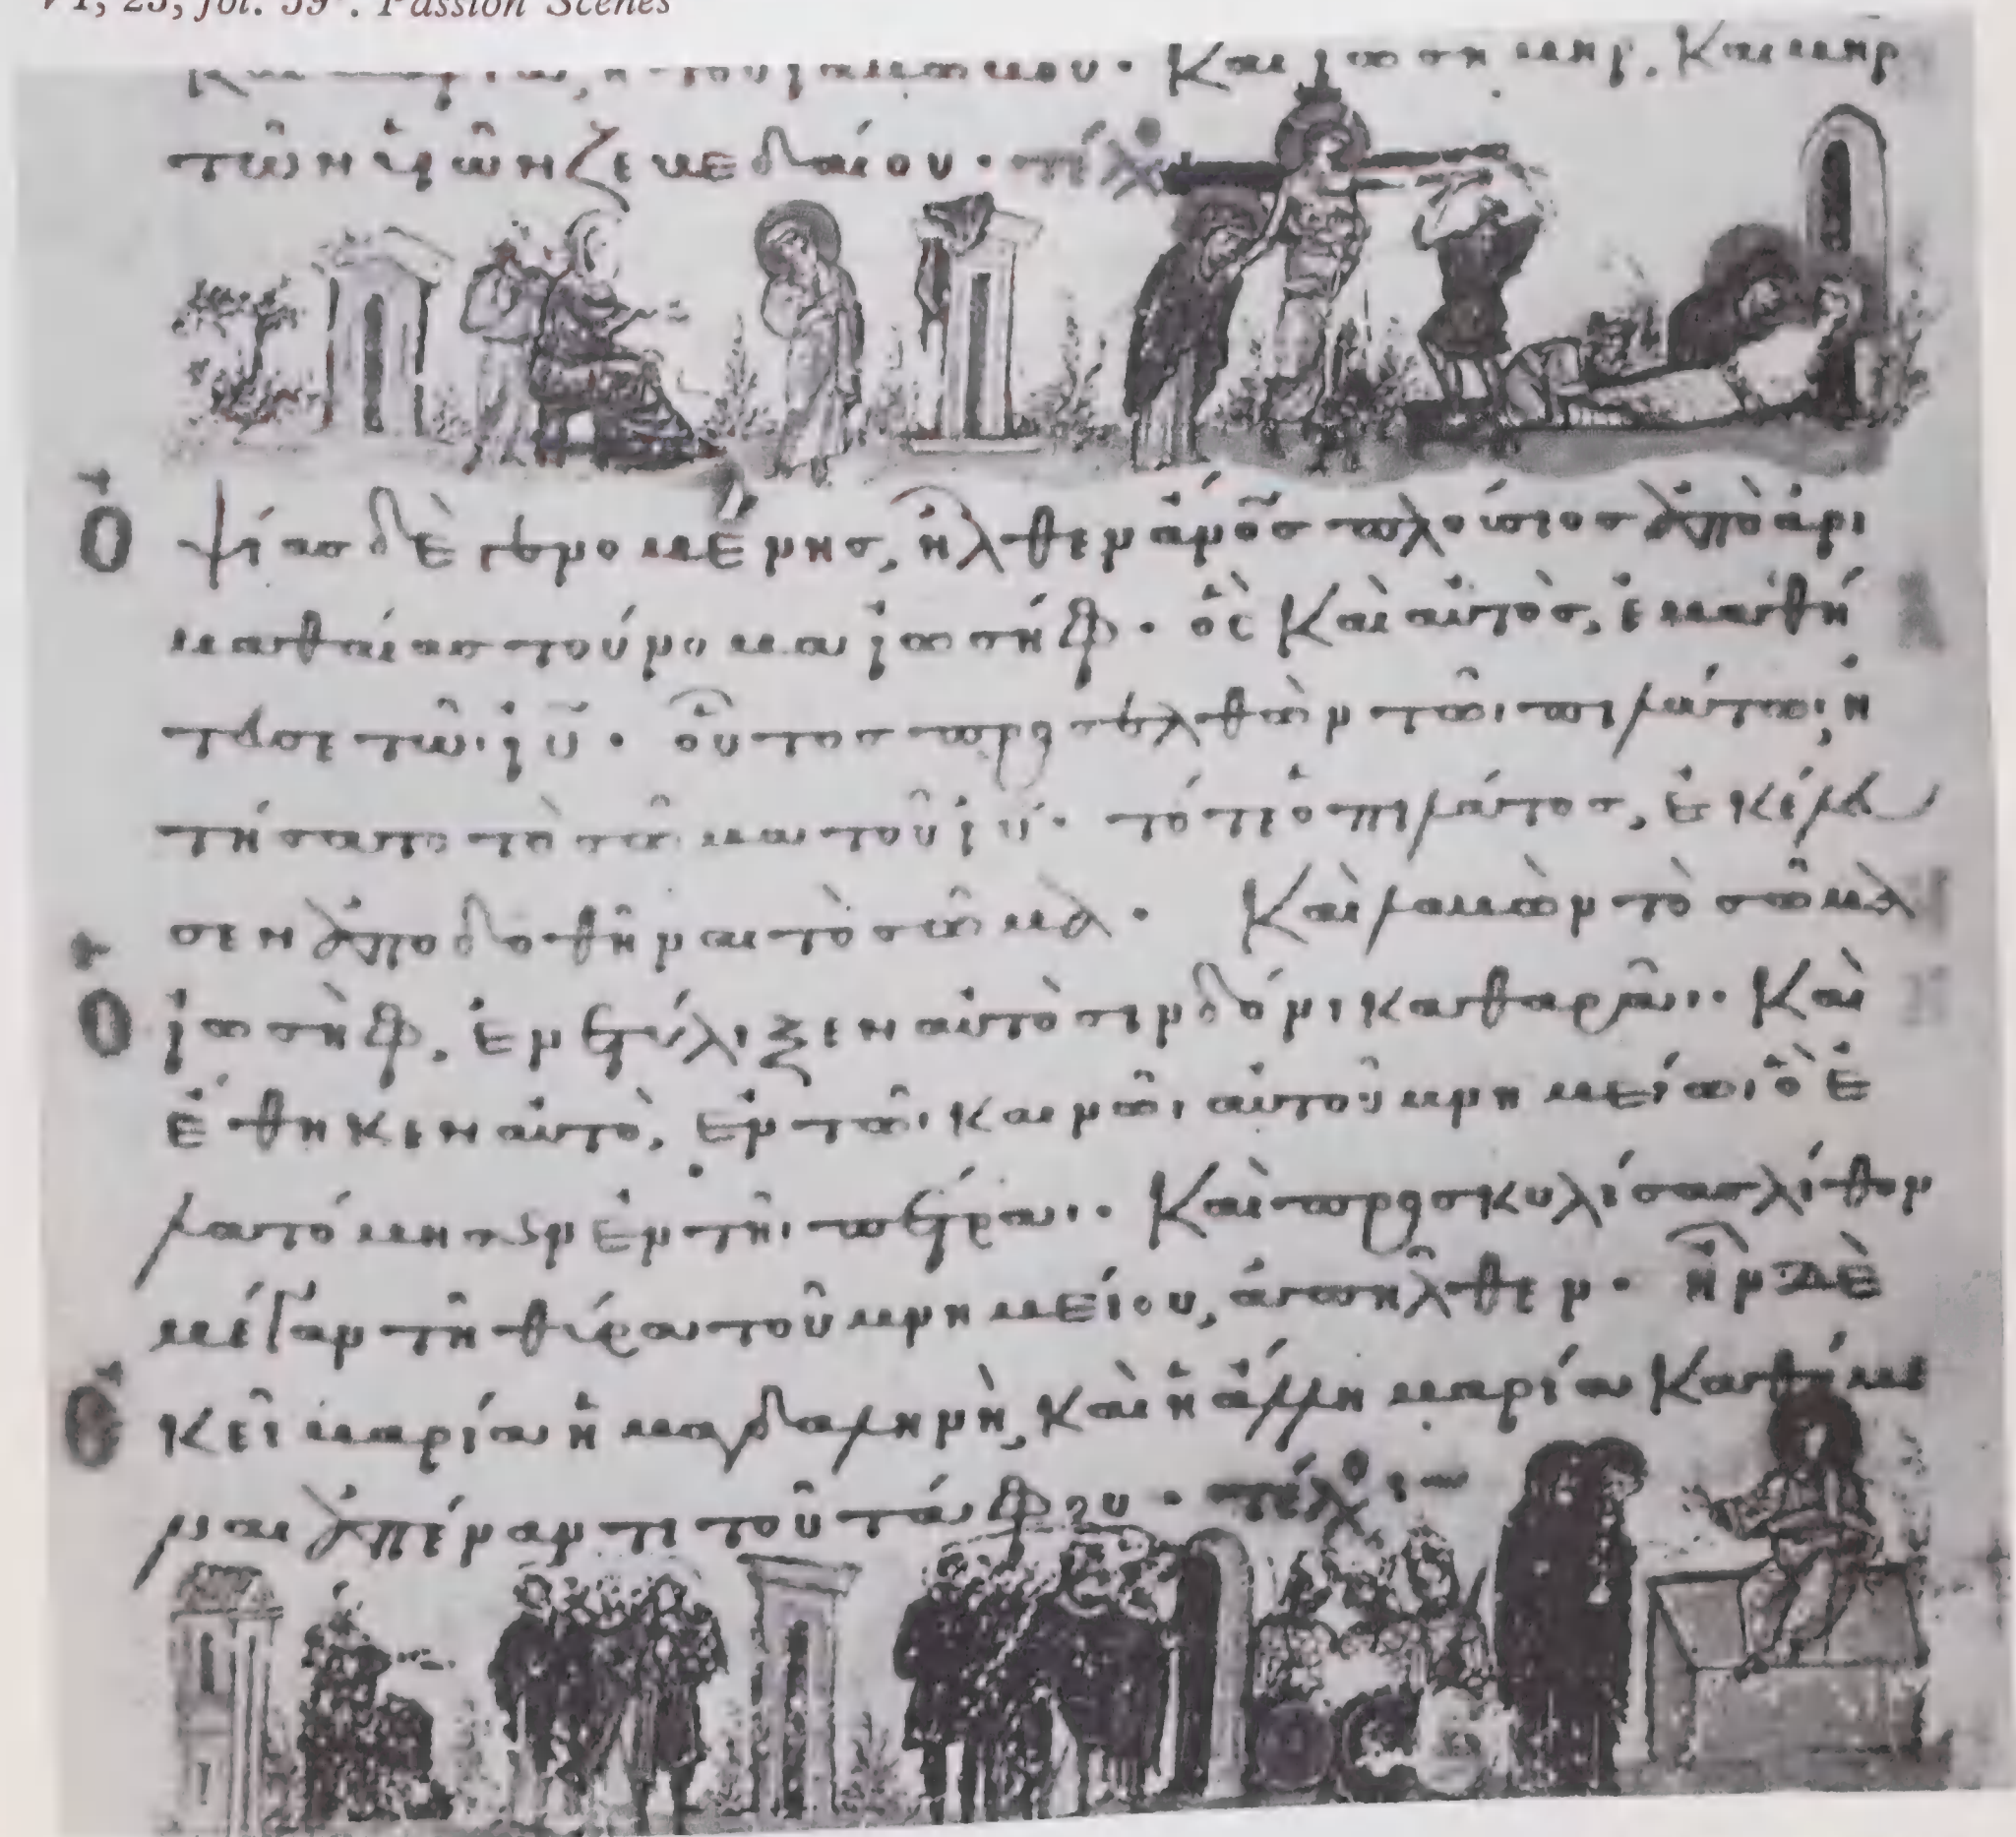 VI, 23, fol. 59v. Passion Scenes
του ϊακώβου· Καὶ ϊωσῆ μηρ, Καὶ μηρ
τῶν ϋἱῶν Ζεβεδαίου· τέλος
Ὀψίας δὲ γενομένης, ἦλθεν ἄνος πλούσιος ἀπὸ ἀρι
μαθαίας τοὔνομα ϊωσήφ· ὃς Καὶ αὐτὸς, ἐμαθή
τευσε τῶι ιυ· οὗτος προσελθὼν τῶι πιλάτωι, ἠ
τήσατο τὸ σῶμα τοῦ ιυ· τότε ὁ πιλάτος, ἐκέλευ
σεν ἀποδοθῆναι τὸ σῶμα· Καὶ λαβὼν τὸ σῶμα
ὁ ϊωσὴφ, ἐνετύλιξεν αὐτὸ σινδόνι καθαρᾶι· Καὶ
ἔθηκεν αὐτὸ, ἐν τῶι καινῶι αὐτοῦ μνημείωι, ὃ ἐ
λατόμησεν ἐν τῆι πέτραι· Καὶ προσκυλίσας λίθον
μέγαν τῆ θύρα τοῦ μνημείου, ἀπῆλθεν· ἦν δὲ
ἐκεῖ μαρία ἡ μαγδαληνὴ, Καὶ ἡ ἄλλη μαρία Καθήμε
ναι ἀπέναντι τοῦ τάφου· τέλος